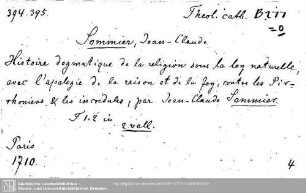 394.395.
Theol. cath. B 277
=0
Sommier, Jean-Claude
Histoire dogmatique de la religion sous la loy naturelle,
avec l'apologie de la raison et de la foy, contre les Pyr-
rhoniens & les incredules, par Jean-Claude Sommier.
T 1.2 in
2 voll.
Paris
1710.
4